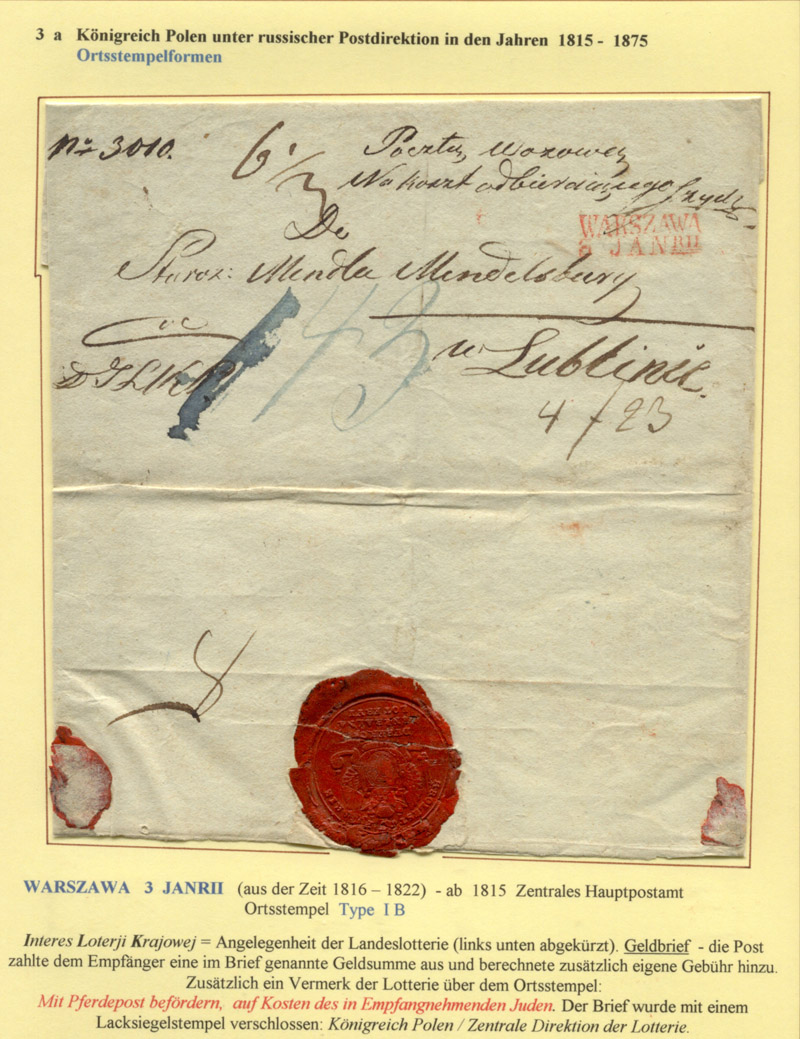 3 a Königreich Polen unter russischer Postdirektion in den Jahren 1815 - 1875
Ortsstempelformen
No 3010.
6 1/2
Pocztą wozową
Na koszt odbierającego Żyda
WARSZAWA
3 JANRII
Do
Staroz: Mendla Mendelsburg
w Lublinie.
43
4 / 23
WARSZAWA 3 JANRII (aus der Zeit 1816 – 1822) - ab 1815 Zentrales Hauptpostamt
Ortsstempel Type I B
Interes Loterji Krajowej = Angelegenheit der Landeslotterie (links unten abgekürzt). Geldbrief - die Post
zahlte dem Empfänger eine im Brief genannte Geldsumme aus und berechnete zusätzlich eigene Gebühr hinzu.
Zusätzlich ein Vermerk der Lotterie über dem Ortsstempel:
Mit Pferdepost befördern, auf Kosten des in Empfangnehmenden Juden. Der Brief wurde mit einem
Lacksiegelstempel verschlossen: Königreich Polen / Zentrale Direktion der Lotterie.